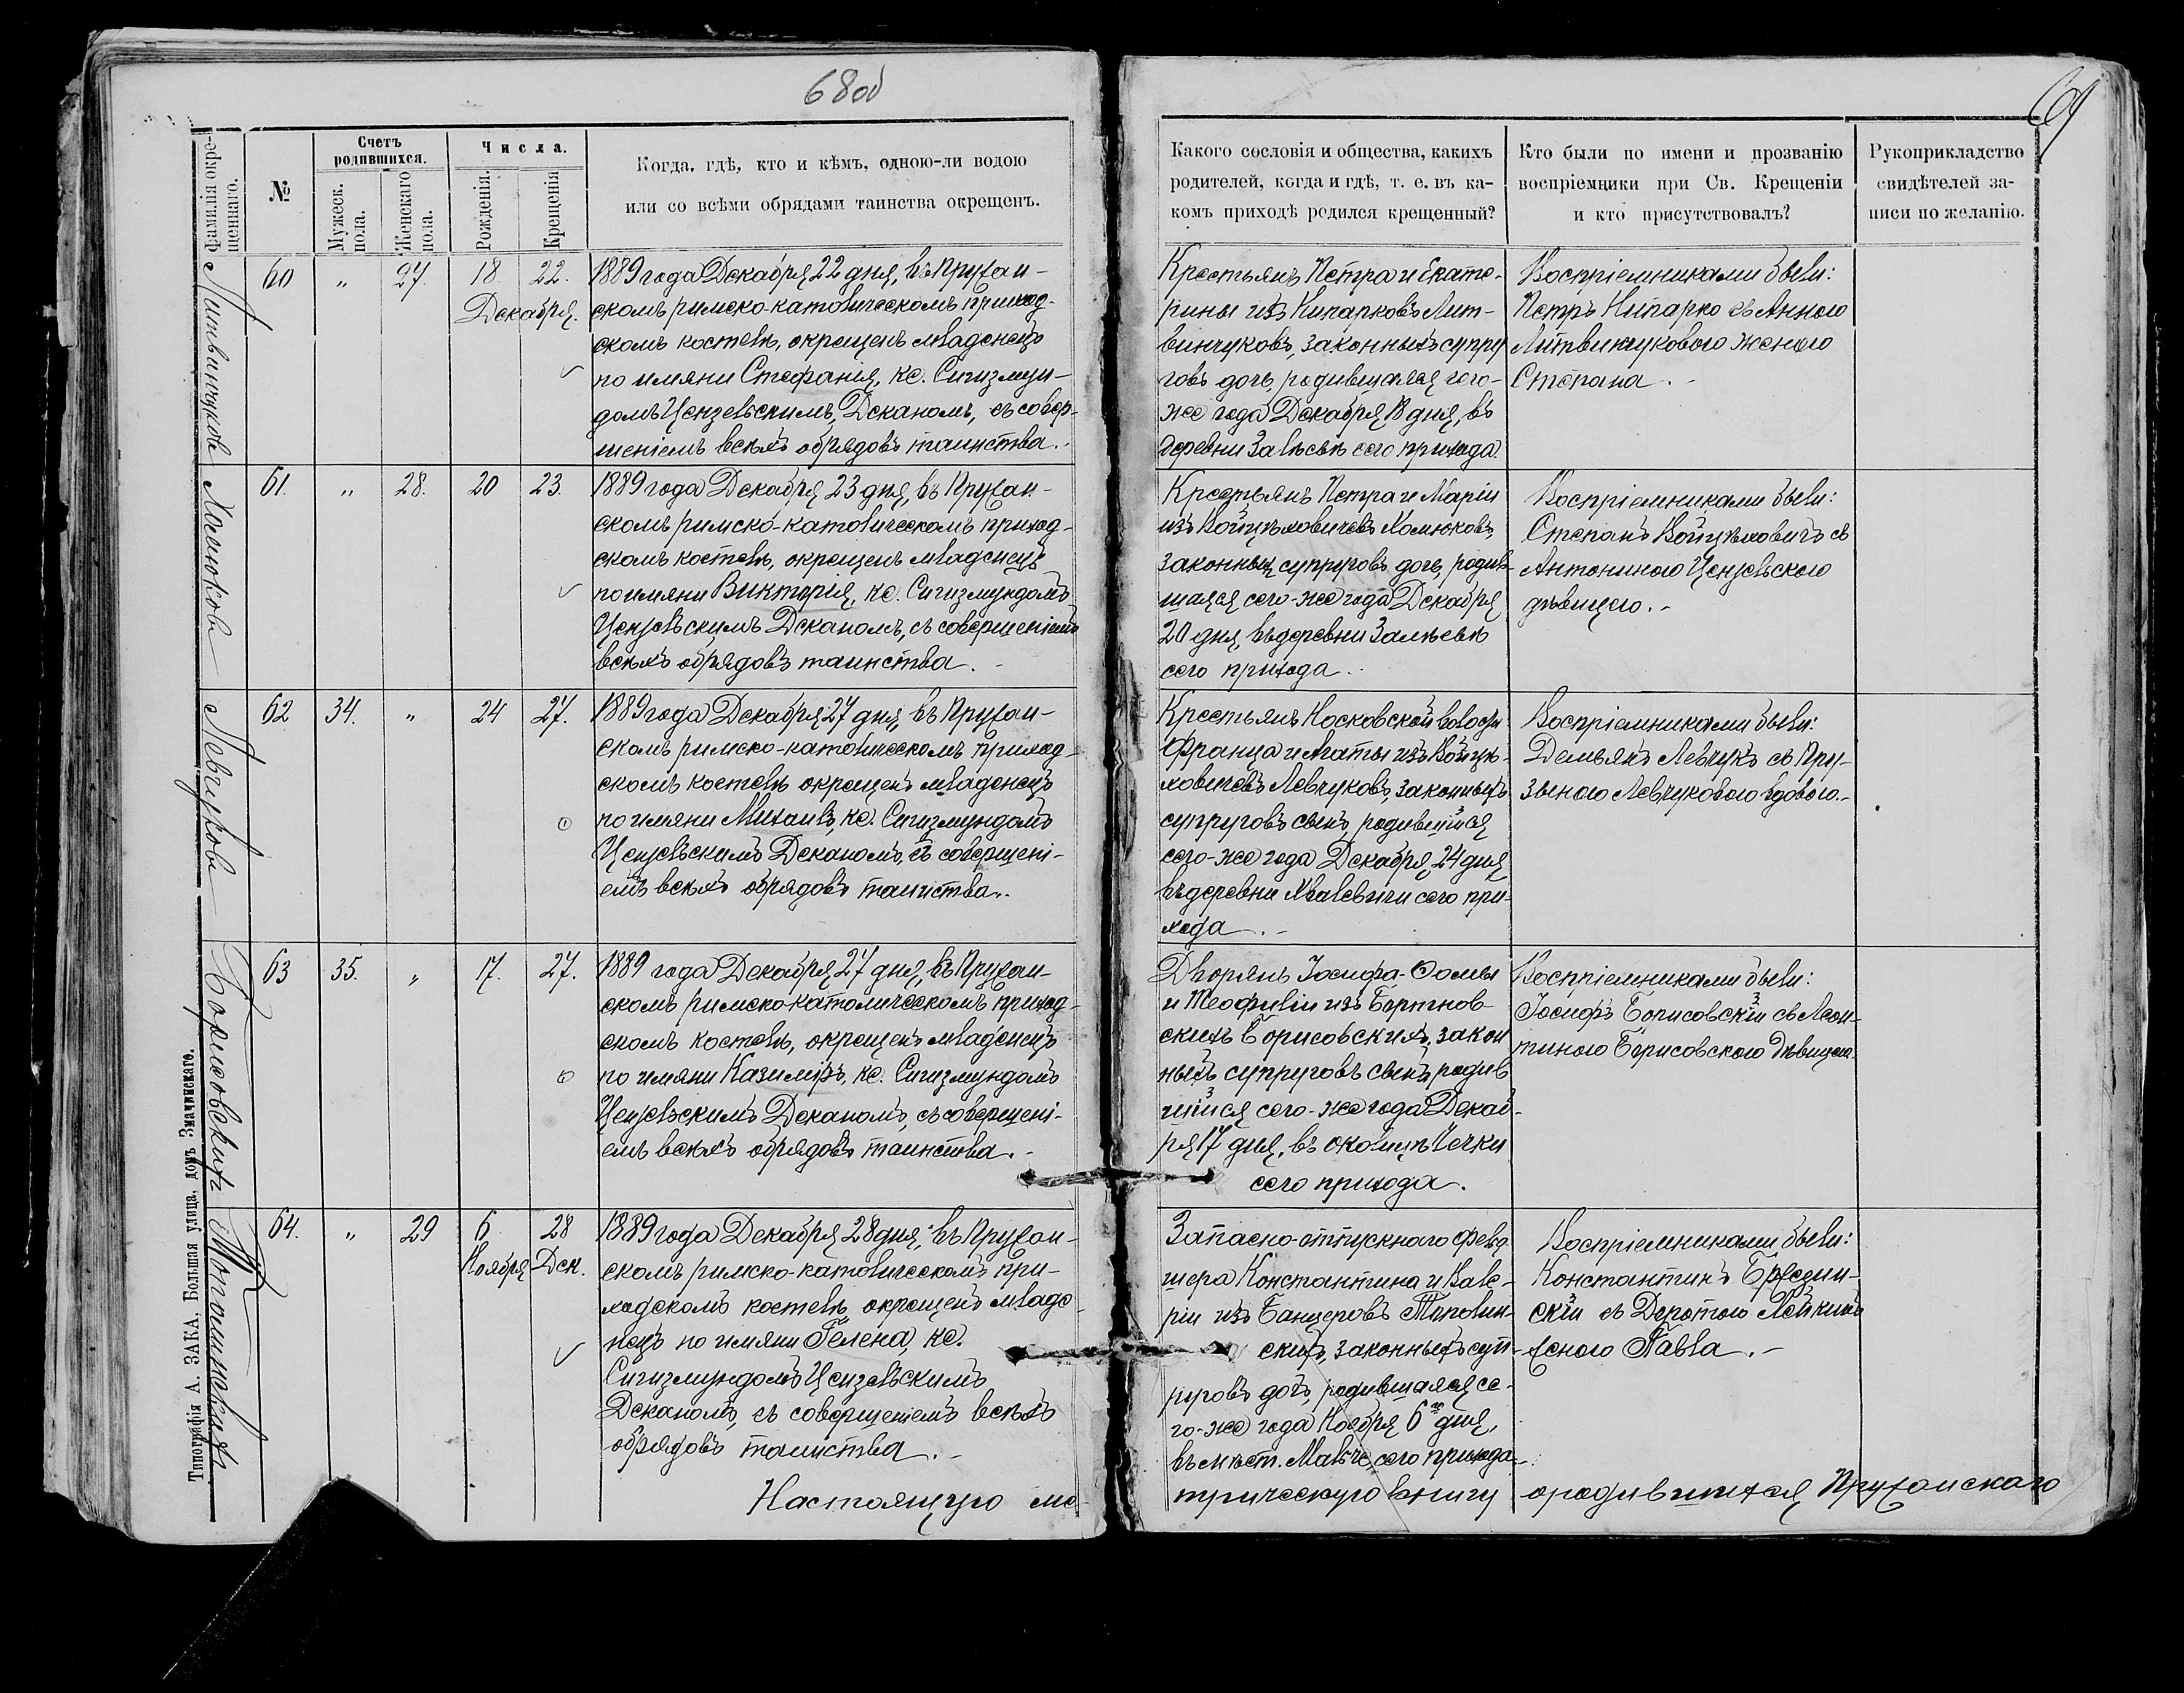 68об
69
Фамилія окре-
щеннаго.
№
Счетъ
родившихся.
Мужеск.
пола.
Женскаго
пола.
Числа.
Рожденія.
Крещенія
Когда, гдѣ, кто и кѣмъ, одною-ли водою
или со всѣми обрядами таинства окрещенъ.
Какого сословія и общества, какихъ
родителей, когда и гдѣ, т. е. въ ка-
комъ приходѣ родился крещенный?
Кто были по имени и прозванію
воспріемники при Св. Крещеніи
и кто присутствовалъ?
Рукоприкладство
свидѣтелей за-
писи по желанію.
Литвинчукова
60 " 27. 18 22.
Декабря.
1889 года Декабря 22 дня, въ Пружан-
скомъ римско-католическомъ приход-
скомъ костелѣ, окрещенъ младенецъ
по имяни Стефанія, кс. Сигизмун-
домъ Цензевскимъ, Деканомъ, съ совер-
шеніемъ всѣхъ обрядовъ таинства.
Крестьянъ Петра и Екате-
рины изъ Нипарковъ Лит-
винчуковъ, законныхъ супру
говъ дочь, родившаяся сего-
же года Декабря 18 дня, въ
деревни Залѣсьѣ сего прихода.
Воспріемниками были:
Петръ Нипарко съ Анною
Литвинчуковою женою
Степана.
Хомюкова
61. " 28. 20 23.
1889 года Декабря 23 дня, въ Пружан-
скомъ римско-католическомъ приход-
скомъ костелѣ, окрещенъ младенецъ
по имяни Викторія, кс. Сигизмундомъ
Цензевскимъ Деканомъ, съ совершеніемъ
всѣхъ обрядовъ таинства.
Крестьянъ Петра и Маріи
изъ Войцѣховичевъ Хомюковъ,
законныхъ супруговъ дочь, родив-
шаяся сего-же года Декабря
20 дня, въ деревни Залѣсьѣ
сего прихода.
Воспріемниками были:
Степанъ Войцѣховичъ съ
Антониною Цензевскою
дѣвицею.
Левчукова
62 34. " 24 27.
1889 года Декабря 27 дня, въ Пружан-
скомъ римско-католическомъ приход-
скомъ костелѣ окрещенъ младенецъ
по имяни Михаилъ, кс. Сигизмундомъ
Цензевскимъ Деканомъ, съ совершені-
емъ всѣхъ обрядовъ таинства.
Крестьянъ Носковской волости
Франца и Агаты изъ Войцѣ-
ховичевъ Левчуковъ, законныхъ
супруговъ сынъ, родившійся
сего-же года Декабря 24 дня
въ деревни Хвалевичи сего при-
хода.
Воспріемниками были:
Демьянъ Левчукъ съ Пру-
зыною Левчуковою вдовою.
Борисовскихъ
63 35. " 17. 27.
1889 года Декабря 27 дня, въ Пружан-
скомъ римско-католическомъ приход-
скомъ костелѣ, окрещенъ младенецъ
по имяни Казиміръ, кс. Сигизмундомъ
Цензевскимъ Деканомъ, съ совершені-
емъ всѣхъ обрядовъ таинства.
Дворянъ Іосифа-Ѳомы
и Теофиліи изъ
скихъ Борисовскихъ, закон
ныхъ супруговъ сынъ, родив
шійся сего-же года Декаб-
ря 17 дня, въ околицѣ Чечки
сего прихода.
Воспріемниками были:
Іосифъ Борисовскій съ Леон-
тиною Борисовскою дѣвицею.
64. " 29 6 28
Ноября Дек.
1889 года Декабря 28 дня, въ Пружан-
скомъ римско-католическомъ при-
ходскомъ костелѣ окрещенъ младе-
нецъ по имяни Гелена, кс.
Сигизмундомъ Цензевскимъ
Деканомъ, съ совершеніемъ всѣхъ
обрядовъ таинства.
Запасно-отпускного фельд
шера Константина и Вале-
ріи изъ Банцеровъ
скихъ, законныхъ суп-
руговъ дочь, родившаяся се-
го-же года Ноября 6го дня,
въ мѣст. Мальче, сего прихода.
Воспріемниками были:
Константинъ
скій съ Доротою
женою Павла.
Настоящую ме-
трическую книгу о родившихся Пружанскаго
Типографія А. ЗАКА, Большая улица, домъ Змачинскаго.